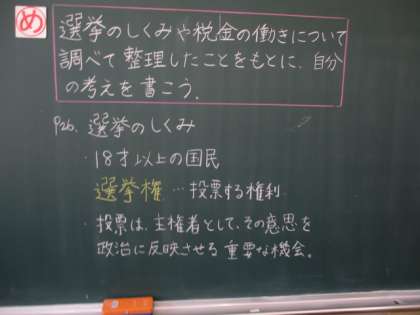 め
選挙のしくみや税金の働きについて
調べて整理したことをもとに、自分
の考えを書こう。
P26、選挙のしくみ
・18才以上の国民
選挙権…投票する権利
・投票は、主権者として、その意思を
政治に反映させる重要な機会。